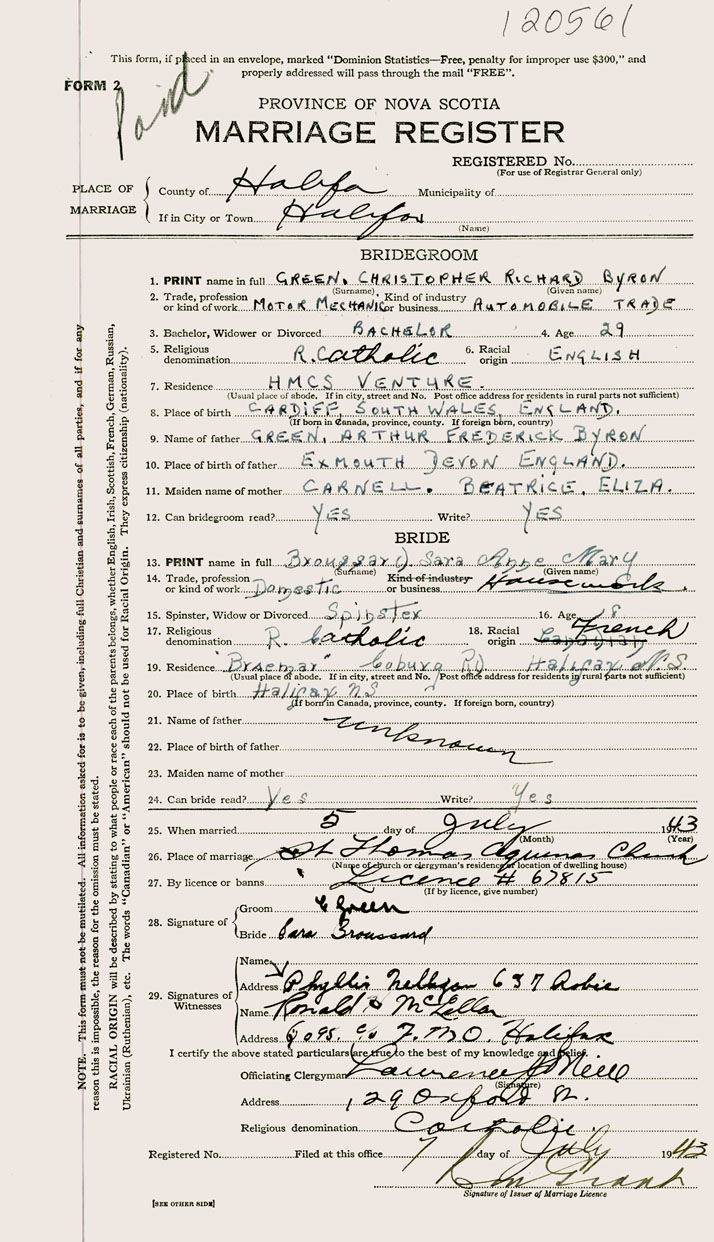 120561
This form, if placed in an envelope, marked "Dominion Statistics—Free, penalty for improper use $300," and
properly addressed will pass through the mail "FREE".
FORM 2
Paid
PROVINCE OF NOVA SCOTIA
MARRIAGE REGISTER
REGISTERED No.
(For use of Registrar General only)
PLACE OF MARRIAGE
County of Halifa Municipality of
If in City or Town Halifax
(Name)
BRIDEGROOM
1. PRINT name in full GREEN, CHRISTOPHER RICHARD BYRON
(Surname) (Given name)
2. Trade, profession or kind of work MOTOR MECHANIC Kind of industry or business AUTOMOBILE TRADE
3. Bachelor, Widower or Divorced BACHELOR 4. Age 29
5. Religious denomination R. Catholic 6. Racial origin ENGLISH
7. Residence HMCS VENTURE.
(Usual place of abode. If in city, street and No. Post office address for residents in rural parts not sufficient)
8. Place of birth CARDIFF, SOUTH WALES, ENGLAND.
(If born in Canada, province, county. If foreign born, country)
9. Name of father GREEN, ARTHUR FREDERICK BYRON
10. Place of birth of father EXMOUTH DEVON ENGLAND.
11. Maiden name of mother CARNELL. BEATRICE, ELIZA.
12. Can bridegroom read? YES Write? YES
BRIDE
13. PRINT name in full Sara Anne Mary
(Surname) (Given name)
14. Trade, profession or kind of work Domestic Kind of industry or business Housework.
15. Spinster, Widow or Divorced Spinster 16. Age 18
17. Religious denomination R. Catholic 18. Racial origin Canadian French
19. Residence "Braemar" Coburg Rd Halifax N.S.
(Usual place of abode. If in city, street and No. Post office address for residents in rural parts not sufficient)
20. Place of birth Halifax NS
(If born in Canada, province, county. If foreign born, country)
21. Name of father
unknown
22. Place of birth of father
23. Maiden name of mother
24. Can bride read? Yes Write? Yes
25. When married 5 day of July 1943
(Month) (Year)
26. Place of marriage St Thomas Aquinas Church
(Name of church or clergyman's residence or location of dwelling house)
27. By licence or banns Licence # 67815
(If by licence, give number)
28. Signature of
Groom C Green
Bride Sara Broussard
29. Signatures of Witnesses
Name
Address Phyllis 637 Robie
Name Ronald McLellan
Address Halifax
I certify the above stated particulars are true to the best of my knowledge and belief.
Officiating Clergyman Lawrence
(Signature)
Address 129 Oxford St.
Religious denomination Catholic.
Registered No. Filed at this office 7 day of July 1943
Grant
Signature of Issuer of Marriage Licence
[SEE OTHER SIDE]
NOTE.—This form must not be mutilated. All information asked for is to be given, including full Christian and surnames of all parties, and if for any
reason this is impossible, the reason for the omission must be stated.
RACIAL ORIGIN will be described by stating to what people or race each of the parents belongs, whether English, Irish, Scottish, French, German, Russian,
Ukrainian (Ruthenian), etc. The words "Canadian" or "American" should not be used for Racial Origin. They express citizenship (nationality).